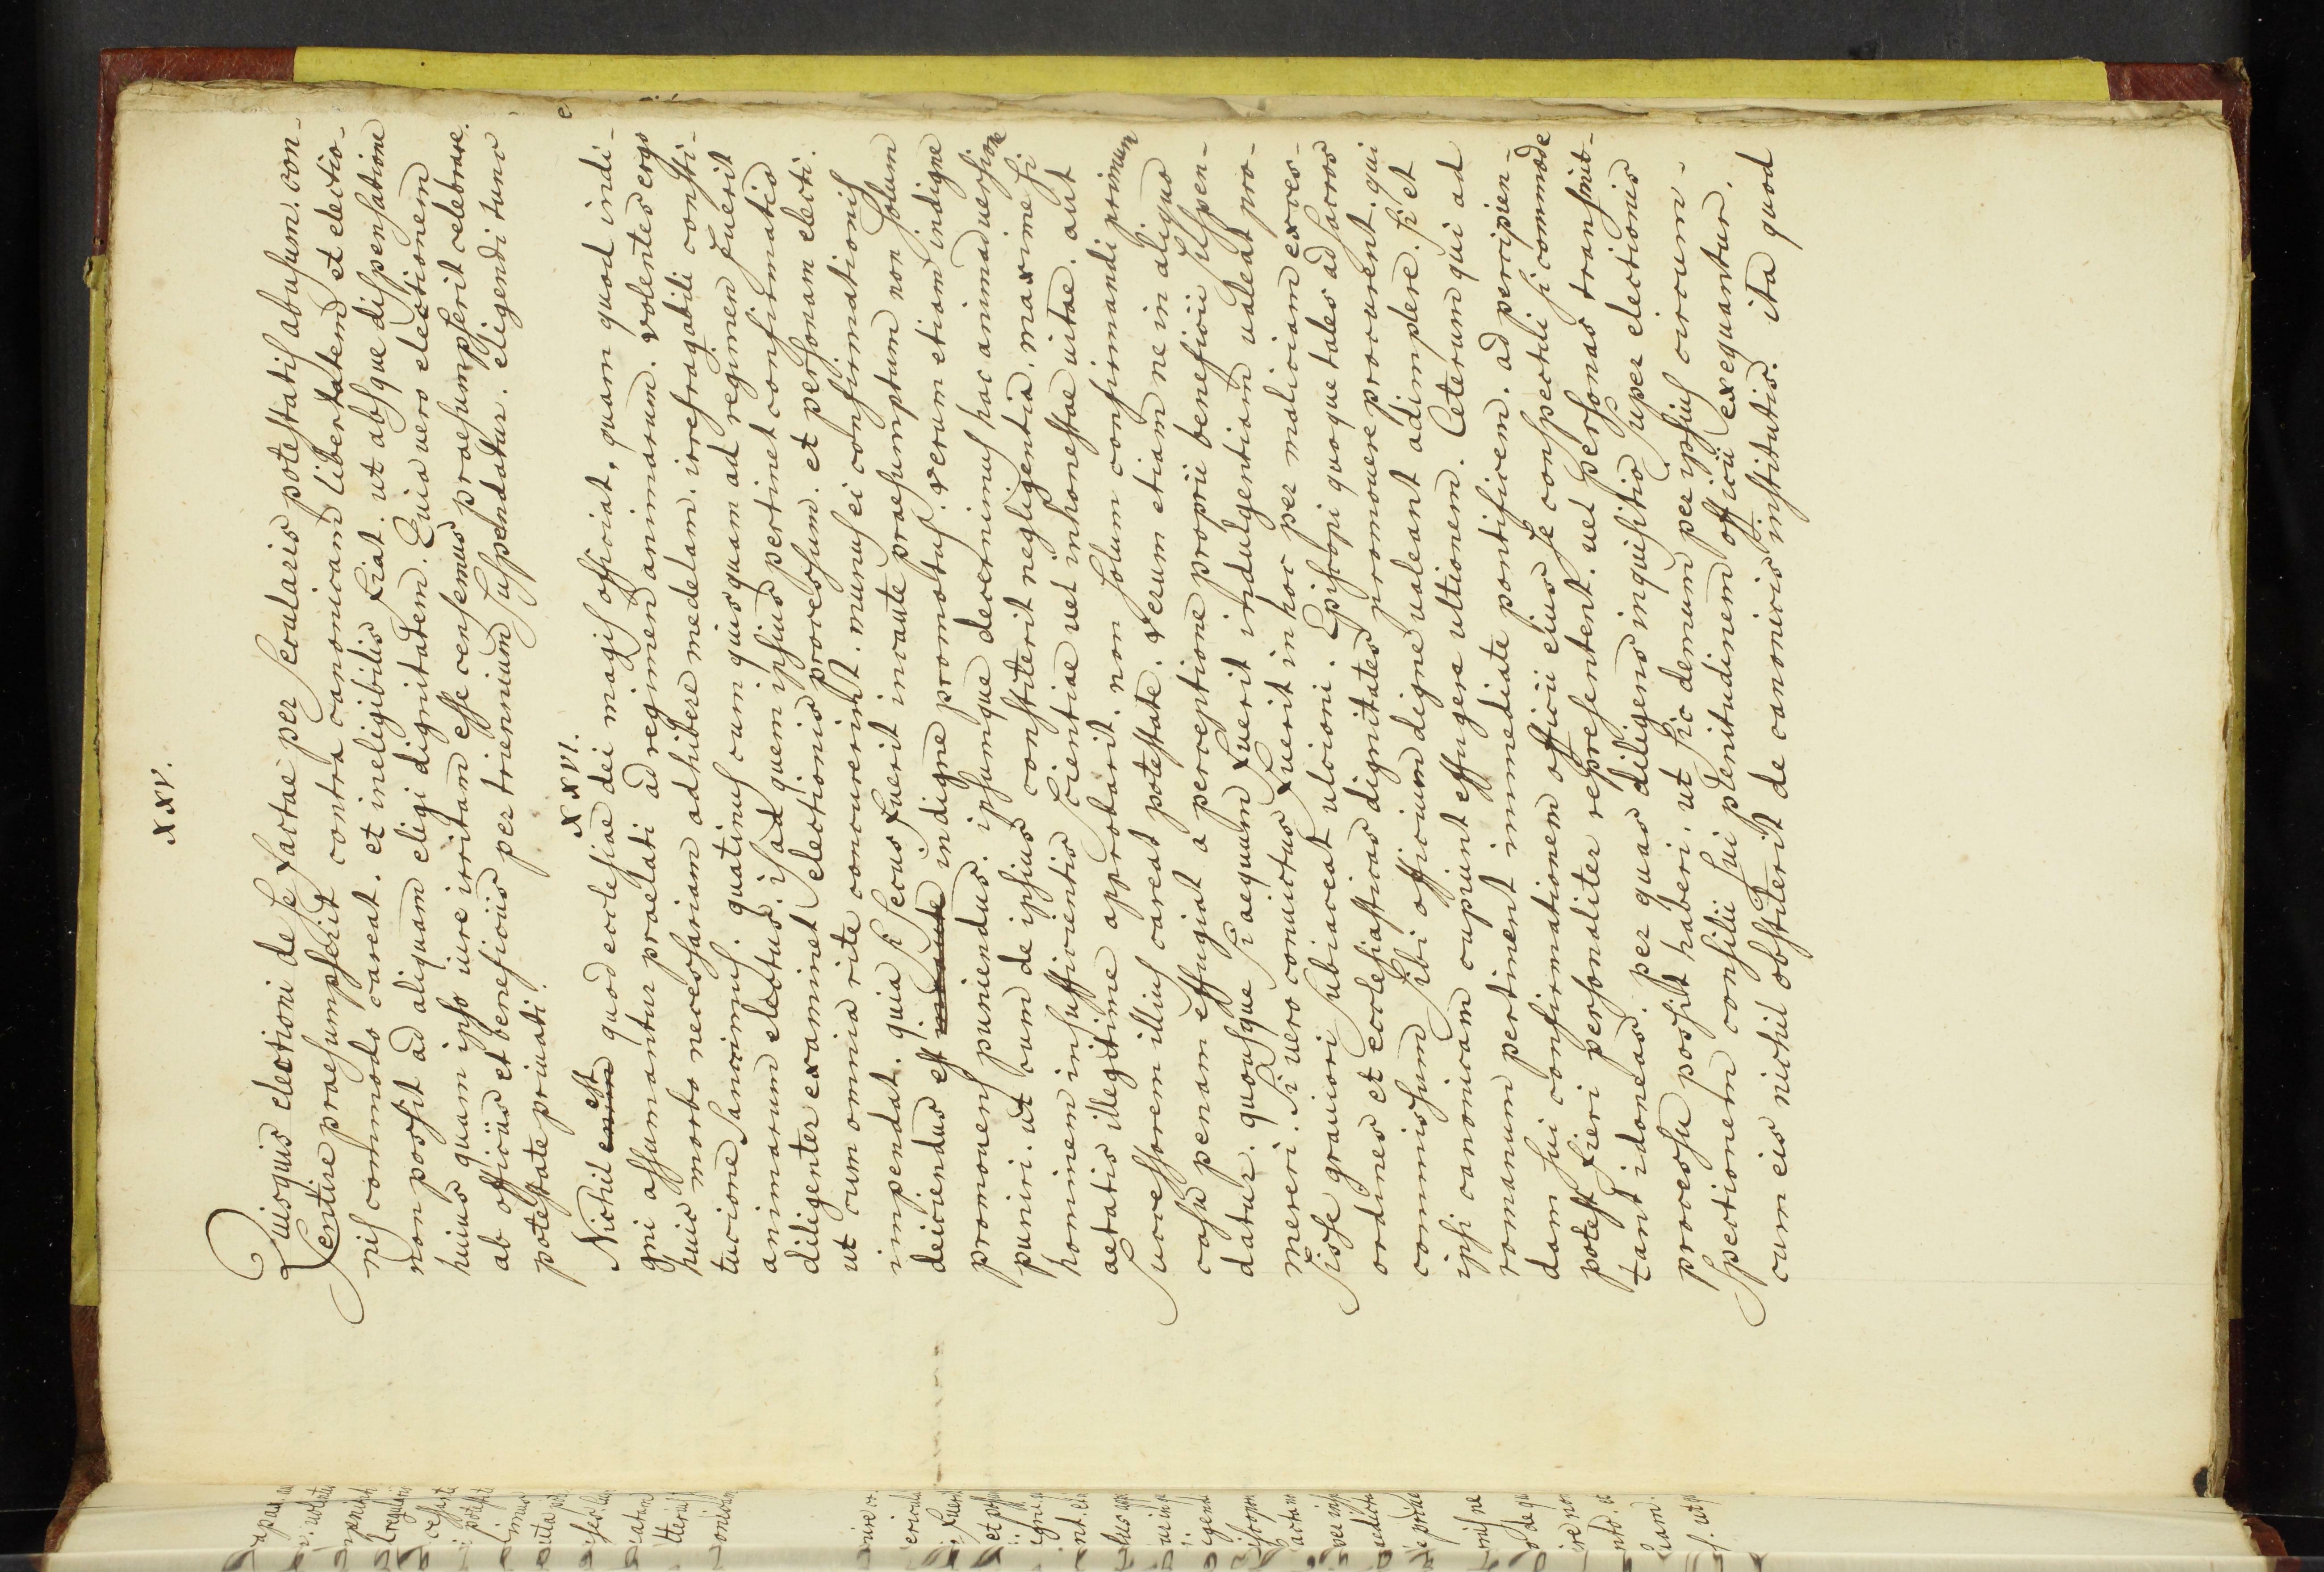 XXV.
Quisquis electioni de se factae per secularis potestatis abusum. con-
sentire praesumpserit contra canonicam libertatem et electio-
nis commodo careat. et ineligibilis fiat. ut absque dispensatione
non possit ad aliquam eligi dignitatem. Qui a uero electionem
huius quam ipso iure irritam esse censemus praesumpserit celebrare.
ab officiis et beneficiis per triennium suspendatur. eligendi tunc
potestate priuati.
XXVI.
Nichil enim est quod ecclesiae dei magis officiat, quam quod indi-
gni assumantur praelati ad regimen animarum. volentes ergo
huic morbo necessariam adhibere medelam. irrefragabili consti-
tucione sancimus. quatinus cum quisquam ad regimen fuerit
animarum electus. is ad quem ipsius pertinet confirmatio
diligenter examinet electionis processum. et personam electi.
ut cum omnia rite concurerint. munus ei confirmationis
impendat. quia si secus fuerit incaute praesumptum non solum
deiciendus est incaute indigne promotus. verum etiam indigne
promouens puniendus. ipsumque decernimus hac animaduersione
puniri. ut cum de ipsius constiterit negligentia. maxime si
hominem insufficientis scientiae uel inhonestae uitae. aut
aetatis illegitime approbarit. non solum confirmandi primum
successorem illius careat potestate. verum etiam ne in aliquo
casu penam effugiat a perceptione proprii beneficii suspen-
datur. quousque si aequum fuerit indulgentiam ualeat pro-
mereri. Si uero conuictus fuerit in hoc per maliciam exces-
sisse grauiori subiaceat ulcioni. Episcopi quoque tales ad sacros
ordines et ecclesiasticas dignitates promouere procurent. qui
commissum sibi officium digne ualeant adimplere. si et
ipsi canonicam cupiunt effugere ultionem. Ceterum qui ad
romanum pertinent immediate pontificem. ad percipien-
dam sui confirmationem officii eius se conspectui si commode
potest fieri personaliter representent. uel personas transmit-
tant idoneas. per quas diligens inquisitio super electionis
processu possit haberi. ut sic demum per ipsius circum-
spectionem consilii sui plenitudinem officii exequantur.
cum eis nichil obstiterit de canonicis institutis. ita quod